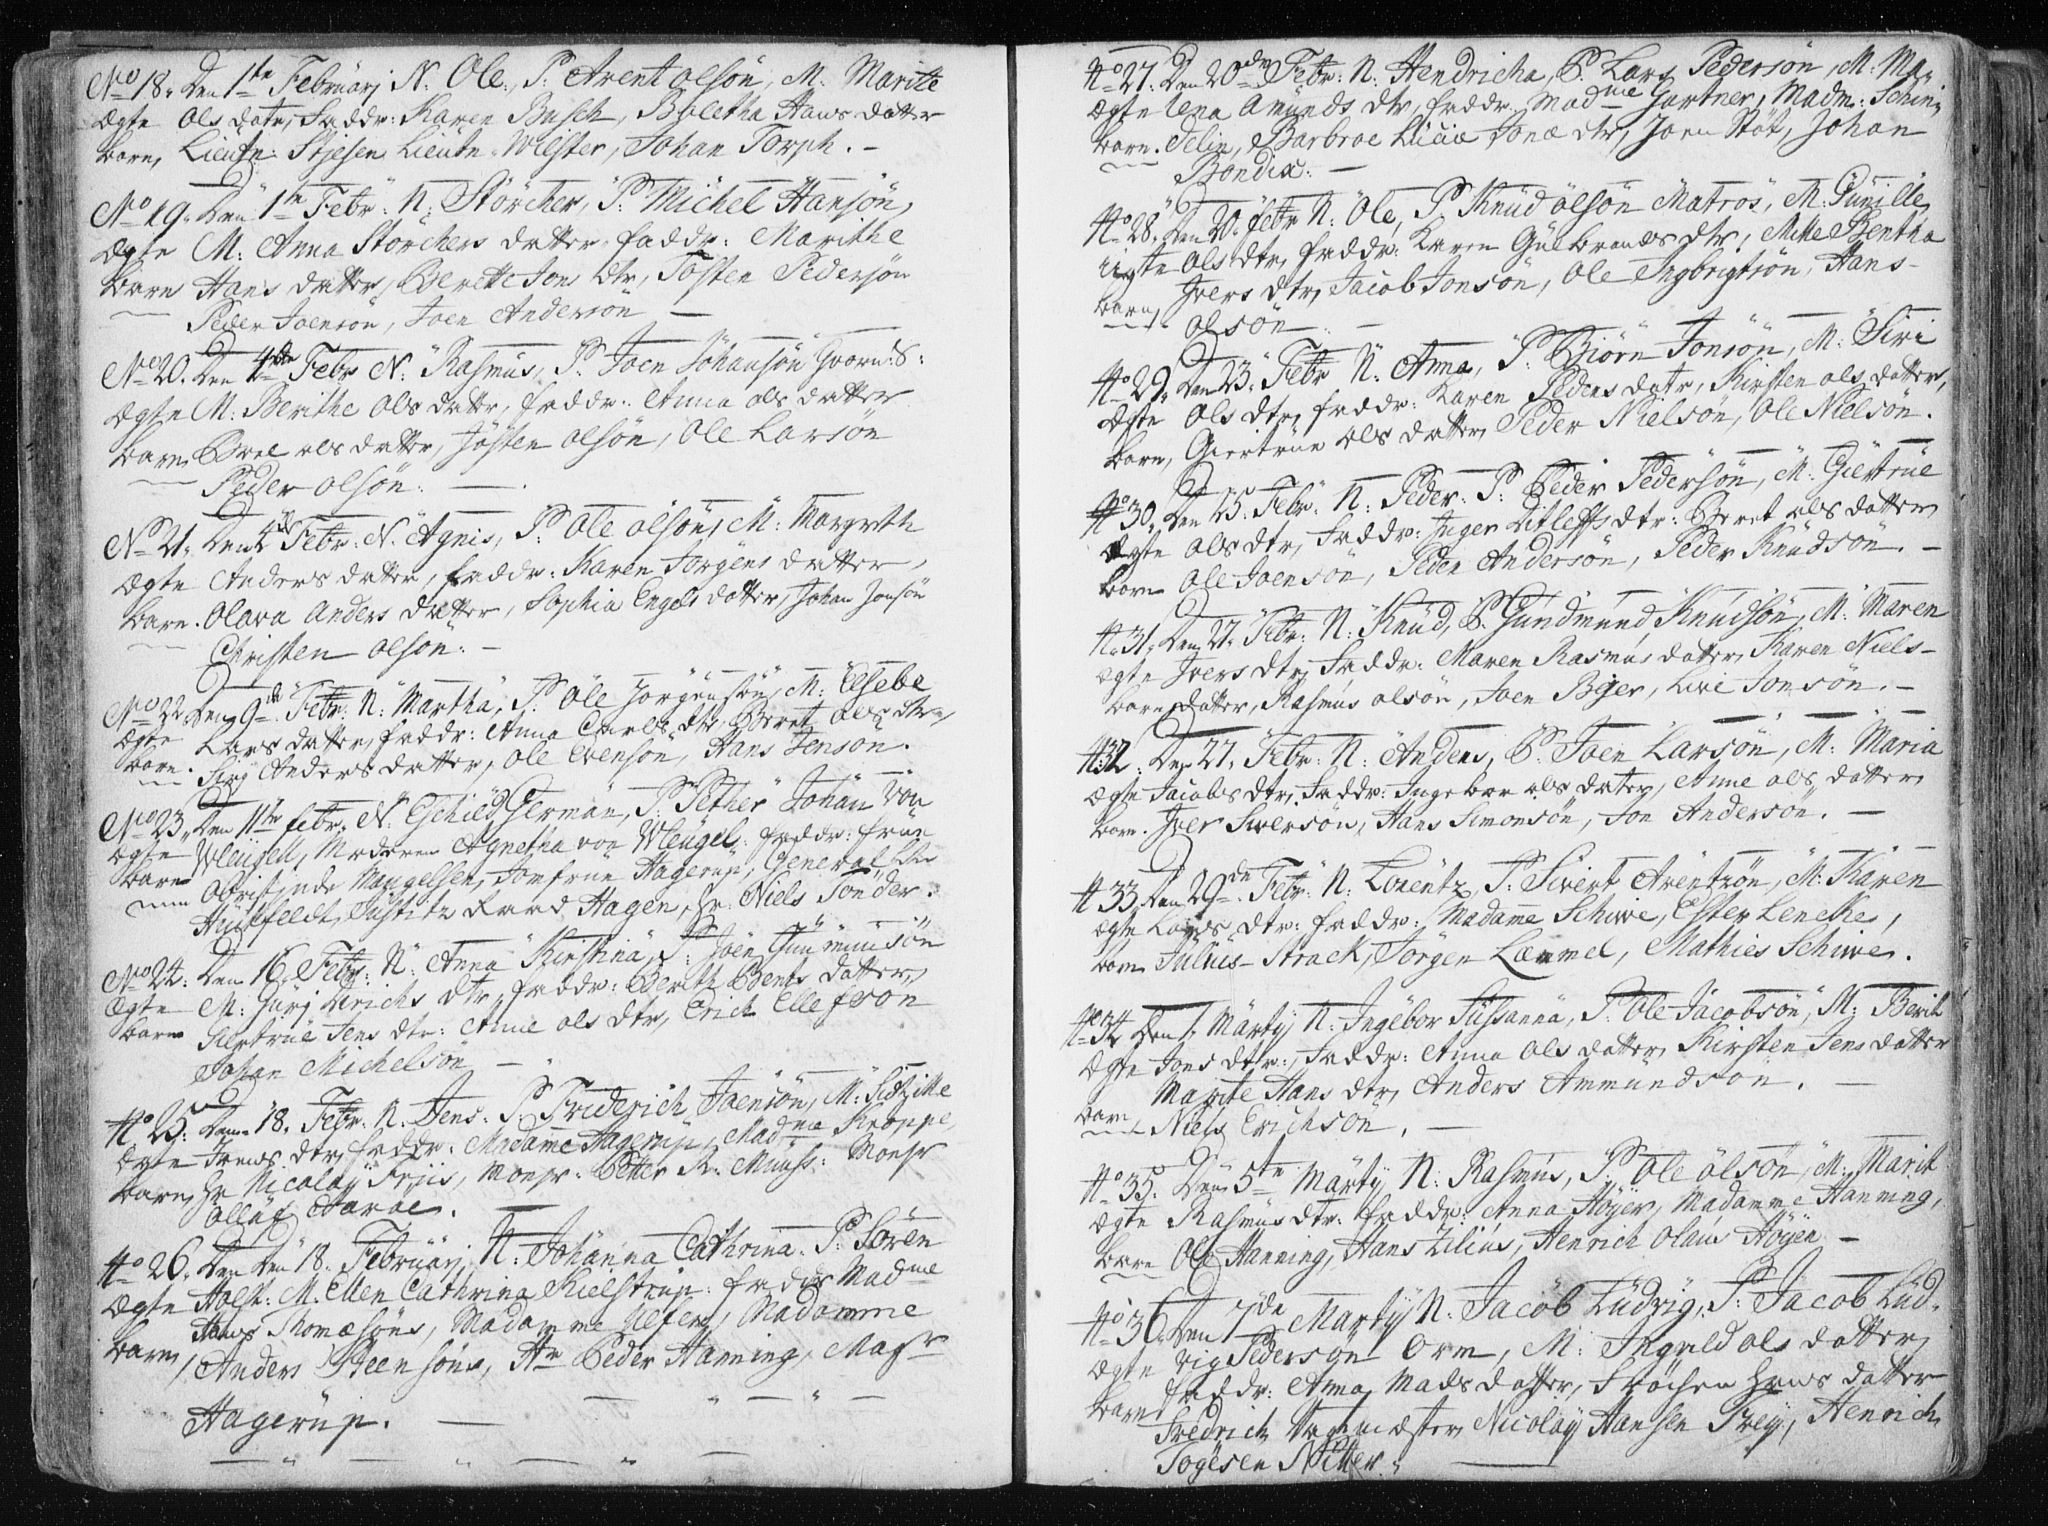 No 18. Den 1te Februarj N. Ole, P. Arent olsön, M. Marite
ægte Ols datr, Faddr: Karen Basch, Boletha Hans datter
barn, Lieutn: Stjesen, Lieutn Wiester, Johan Torph. –
No 19. Den 1te Febr. N: Störcher, P. Michel Hansön,
ægte M. Anna Storchers datter, faddr: Marithe
barn Hans datter, Berette Jons dtr, Tosten Pedersön
Peder Joensön, Joen Andersön –
No 20. Den 4de Febr N: Rasmus, P. Joen Johansön Gvorn:S:
ægte M: Berithe Ols datter, faddr: Anna ols datter
barn Brel ols datter, Jösten olsön, Ole Larsön
Peder olsön. –
No 21. Den 4de Febr. N. Agnis, P. Ole olsön, M: Margreth
ægte Anders datter, faddr: Karen Jorgens datter,
barn. Olava Anders datter, Sophia Engels datter, Johan Jonsön
Christen olsön. –
No 22 Den 9de Febr. N. Martha, P. Ole Jorgensön, M: Elsebe
ægte Lars datter, faddr: Anna Carls dtr Beret Ols dtr,
barn. Siri Anders datter, Ole Evensön, Hans Jensön.
No 23. Den 11te febr. N. Eschild German, P. Pether Johan von
ægte Wleugell, Moderen Agnetha von Wleugel: faddr: frue
barn Obristinde Mangelsen, Jomfrue Hagerup, General
Huitfeldt, Justitz Raad Hagen, Hr. Niels Tönder.
No 24. Den 16. Febr. N. Anna Kirstina, P. Joen Gunmunsön
ægte M. Guri Erichs dtr, faddr: Berith Bents datter,
barn Giertrue Jens dtr: Anne ols dtr, Erich Ellefsön
Johan Michelsön –
No 25. Den 18. Febr. N. Jens. P. Friderich Joensön, M. Sidzille
ægte Jens dtr, faddr: Madame Hagerup, Madme Kroppe,
barn, Hr Nicolay Friis, Monsr: Petter R. Muus: Monsr
Olluf Harae.
No 26. Den 18. Februarj, N. Johanna Cathrina. P. Sören
ægte Holst: M. Ellen Cathrina Kielstrup. faddr Madme
barn, Hans Thomæsöns, Madamme Ulfers, Madamme
Anders Steensöns, Hr Peder Hanning, Mag
Hagerup. –
No 27. Den 20de Febr: N: Hendricha, P. Lars Pedersön, M: Ma-
ægte lena Amunds dtr, faddr: Madme Gartner, Madm: Schin
barn. Telin, Barbroe Jonæ dtr, Joen Stöt, Johan
Bondix. –
No 28. Den 20. Febr N: Ole, P Knud olsön Matros, M. Gunille
ægte Ols dtr, faddr: Karen Gulbrands dtr, Mette Bentha
barn, Ivers dtr, Jacob Jonsön, Ole Ingbrigtsön, Hans
olsön. –
No 29. Den 23. Febr N. Anna, P. Biörn Jonsön, M: Siri
ægte Ols dtr, faddr: Karen Peders datr, Kirsten ols datter,
barn, Giertrue ols datter, Peder Nielsön, Ole Nielsön.
No 30. Den 25. Febr. N: Peder. P. Peder Pedersön, M: Giertrue
ægte Ols dtr, Faddr: Inger Ditleffs dtr: Beret ols datter
barn Ole Joensön, Peder Andersön, Peder Knudsön. –
N. 31. Den 27. Febr. N: Knud, P. Gundmund Knudsön, M: Maren
ægte Ivers dtr, Faddr: Maren Rasmus datter, Karen Niels-
barn, datter, Rasmus olsön, Joen Beyer, Live Jonsön. –
N: 32. Den 27. Febr. N: Anders, P. Joen Larsön, M: Maria
ægte Jacobs dtr, Faddr: Ingebor ols datter, Anne ols datter
barn. Iver Siversön, Hans Simonsön, Jon Andersön. –
N 33. Den 29de Febr. N: Lorentz, P. Sivert Arentzön, M: Karen
ægte Lars dtr: faddr: Madame Schive, Ester Lencke,
barn Julius Strack, Jörgen Læmmel, Mathies Schive.
No 34 Den 1. Martij N. Ingebor Sussanna, P. Ole Jacobsön, M: Berit
ægte Jons dtr: Faddr: Anna Ols datter, Kirsten Jens datter
Marite Hans dtr, Anders Ammundsön. –
barn Niels Erichsön. –
No 35. Den 5te Martij N. Rasmus, P. Ole olsön, M: Marit
ægte Rasmus dtr: faddr: Anna Höyer, Madamme Hanning,
barn Ole Hanning, Hans Zilius, Henrich Olaus Höyer –
No 36. Den 7de Martij N. Jacob Ludvig, P. Jacob Lud-
ægte vig Pedersön Orm, M: Ingeld ols datter,
barn faddr: Anna Mads datter, Hans datter
Fredrich Vagtmæster, Nicolay Hansen Frey, Henrich
Togesen Netter.